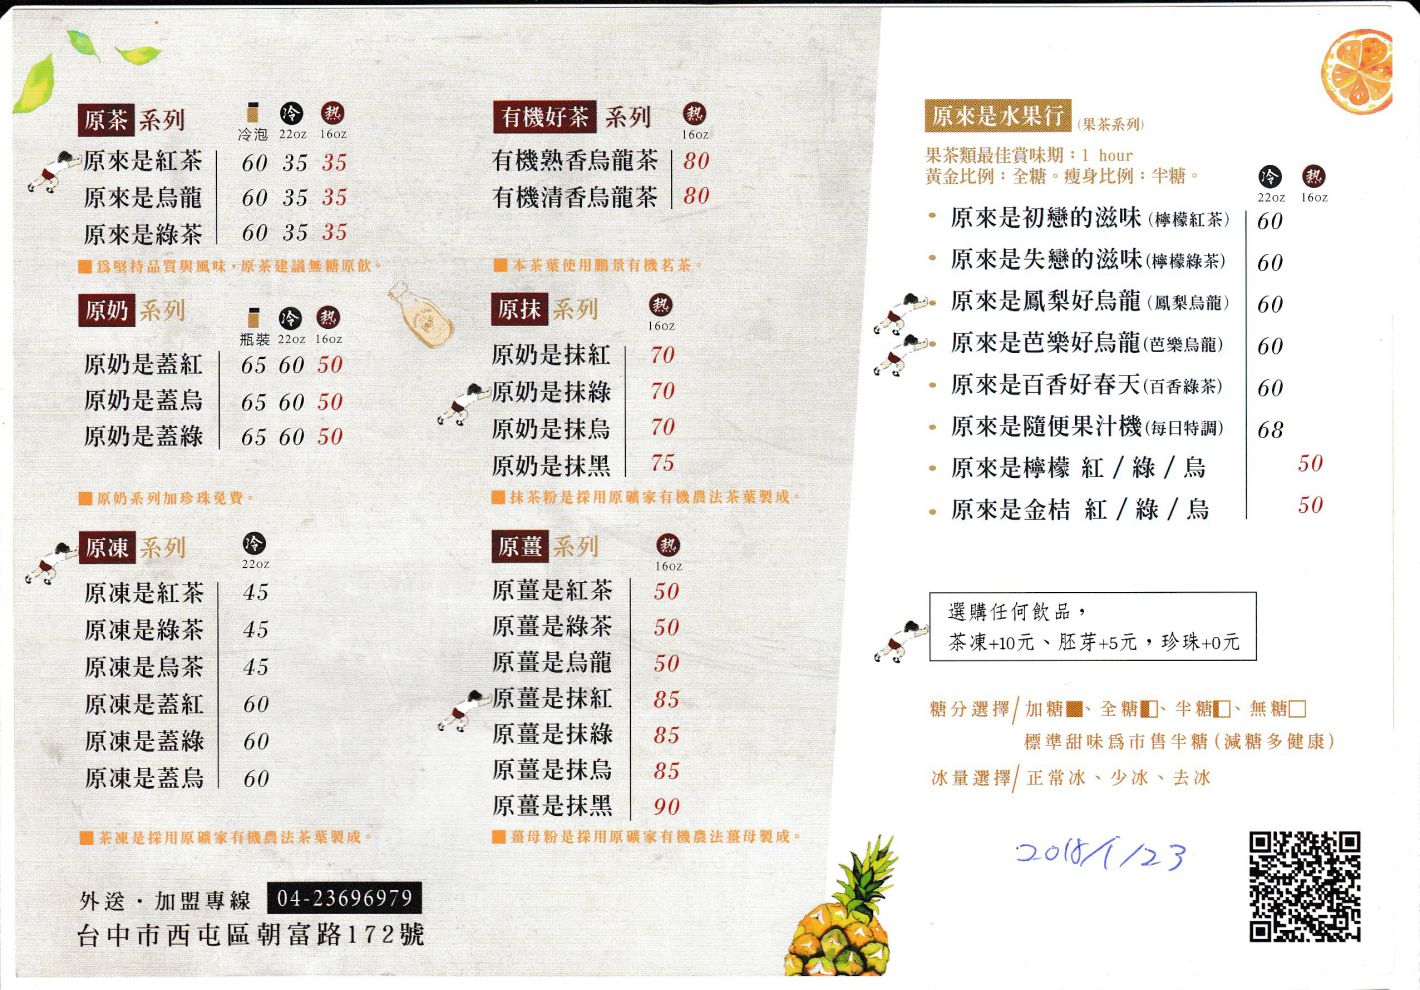 原茶 系列
冷泡 冷 22oz 熱 16oz
原來是紅茶 60 35 35
原來是烏龍 60 35 35
原來是綠茶 60 35 35
為堅持品質與風味，原茶建議無糖原飲。
原奶 系列
瓶裝 冷 22oz 熱 16oz
原奶是蓋紅 65 60 50
原奶是蓋烏 65 60 50
原奶是蓋綠 65 60 50
原奶系列加珍珠免費。
原凍 系列
冷 22oz
原凍是紅茶 45
原凍是綠茶 45
原凍是烏茶 45
原凍是蓋紅 60
原凍是蓋綠 60
原凍是蓋烏 60
茶凍是採用原礦家有機農法茶葉製成。
外送・加盟專線 04-23696979
台中市西屯區朝富路172號
有機好茶 系列
熱 16oz
有機熟香烏龍茶 80
有機清香烏龍茶 80
本茶葉使用鵬景有機茗茶。
原抹 系列
熱 16oz
原奶是抹紅 70
原奶是抹綠 70
原奶是抹烏 70
原奶是抹黑 75
抹茶粉是採用原礦家有機農法茶葉製成。
原薑 系列
熱 16oz
原薑是紅茶 50
原薑是綠茶 50
原薑是烏龍 50
原薑是抹紅 85
原薑是抹綠 85
原薑是抹烏 85
原薑是抹黑 90
薑母粉是採用原礦家有機農法薑母製成。
原來是水果行 (果茶系列)
果茶類最佳賞味期：1 hour
黃金比例：全糖。瘦身比例：半糖。
冷 22oz 熱 16oz
原來是初戀的滋味(檸檬紅茶) 60
原來是失戀的滋味(檸檬綠茶) 60
原來是鳳梨好烏龍(鳳梨烏龍) 60
原來是芭樂好烏龍(芭樂烏龍) 60
原來是百香好春天(百香綠茶) 60
原來是隨便果汁機(每日特調) 68
原來是檸檬 紅/綠/烏 50
原來是金桔 紅/綠/烏 50
選購任何飲品，
茶凍+10元、胚芽+5元，珍珠+0元
糖分選擇/加糖、全糖、半糖、無糖
標準甜味為市售半糖(減糖多健康)
冰量選擇/正常冰、少冰、去冰
2018/1/23